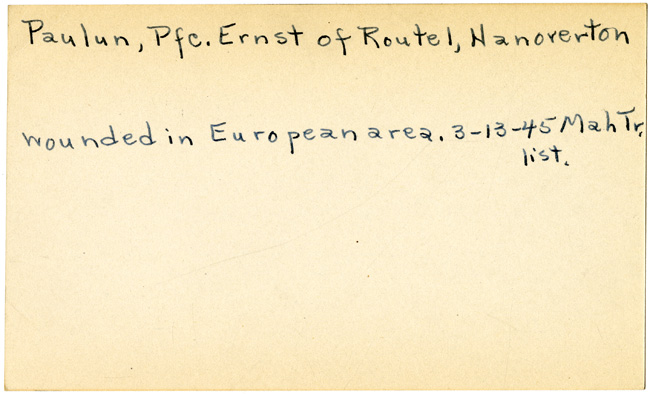 Paulun, Pfc. Ernst of Route 1, Hanoverton
wounded in European area. 3-13-45 Mah Tr.
list.